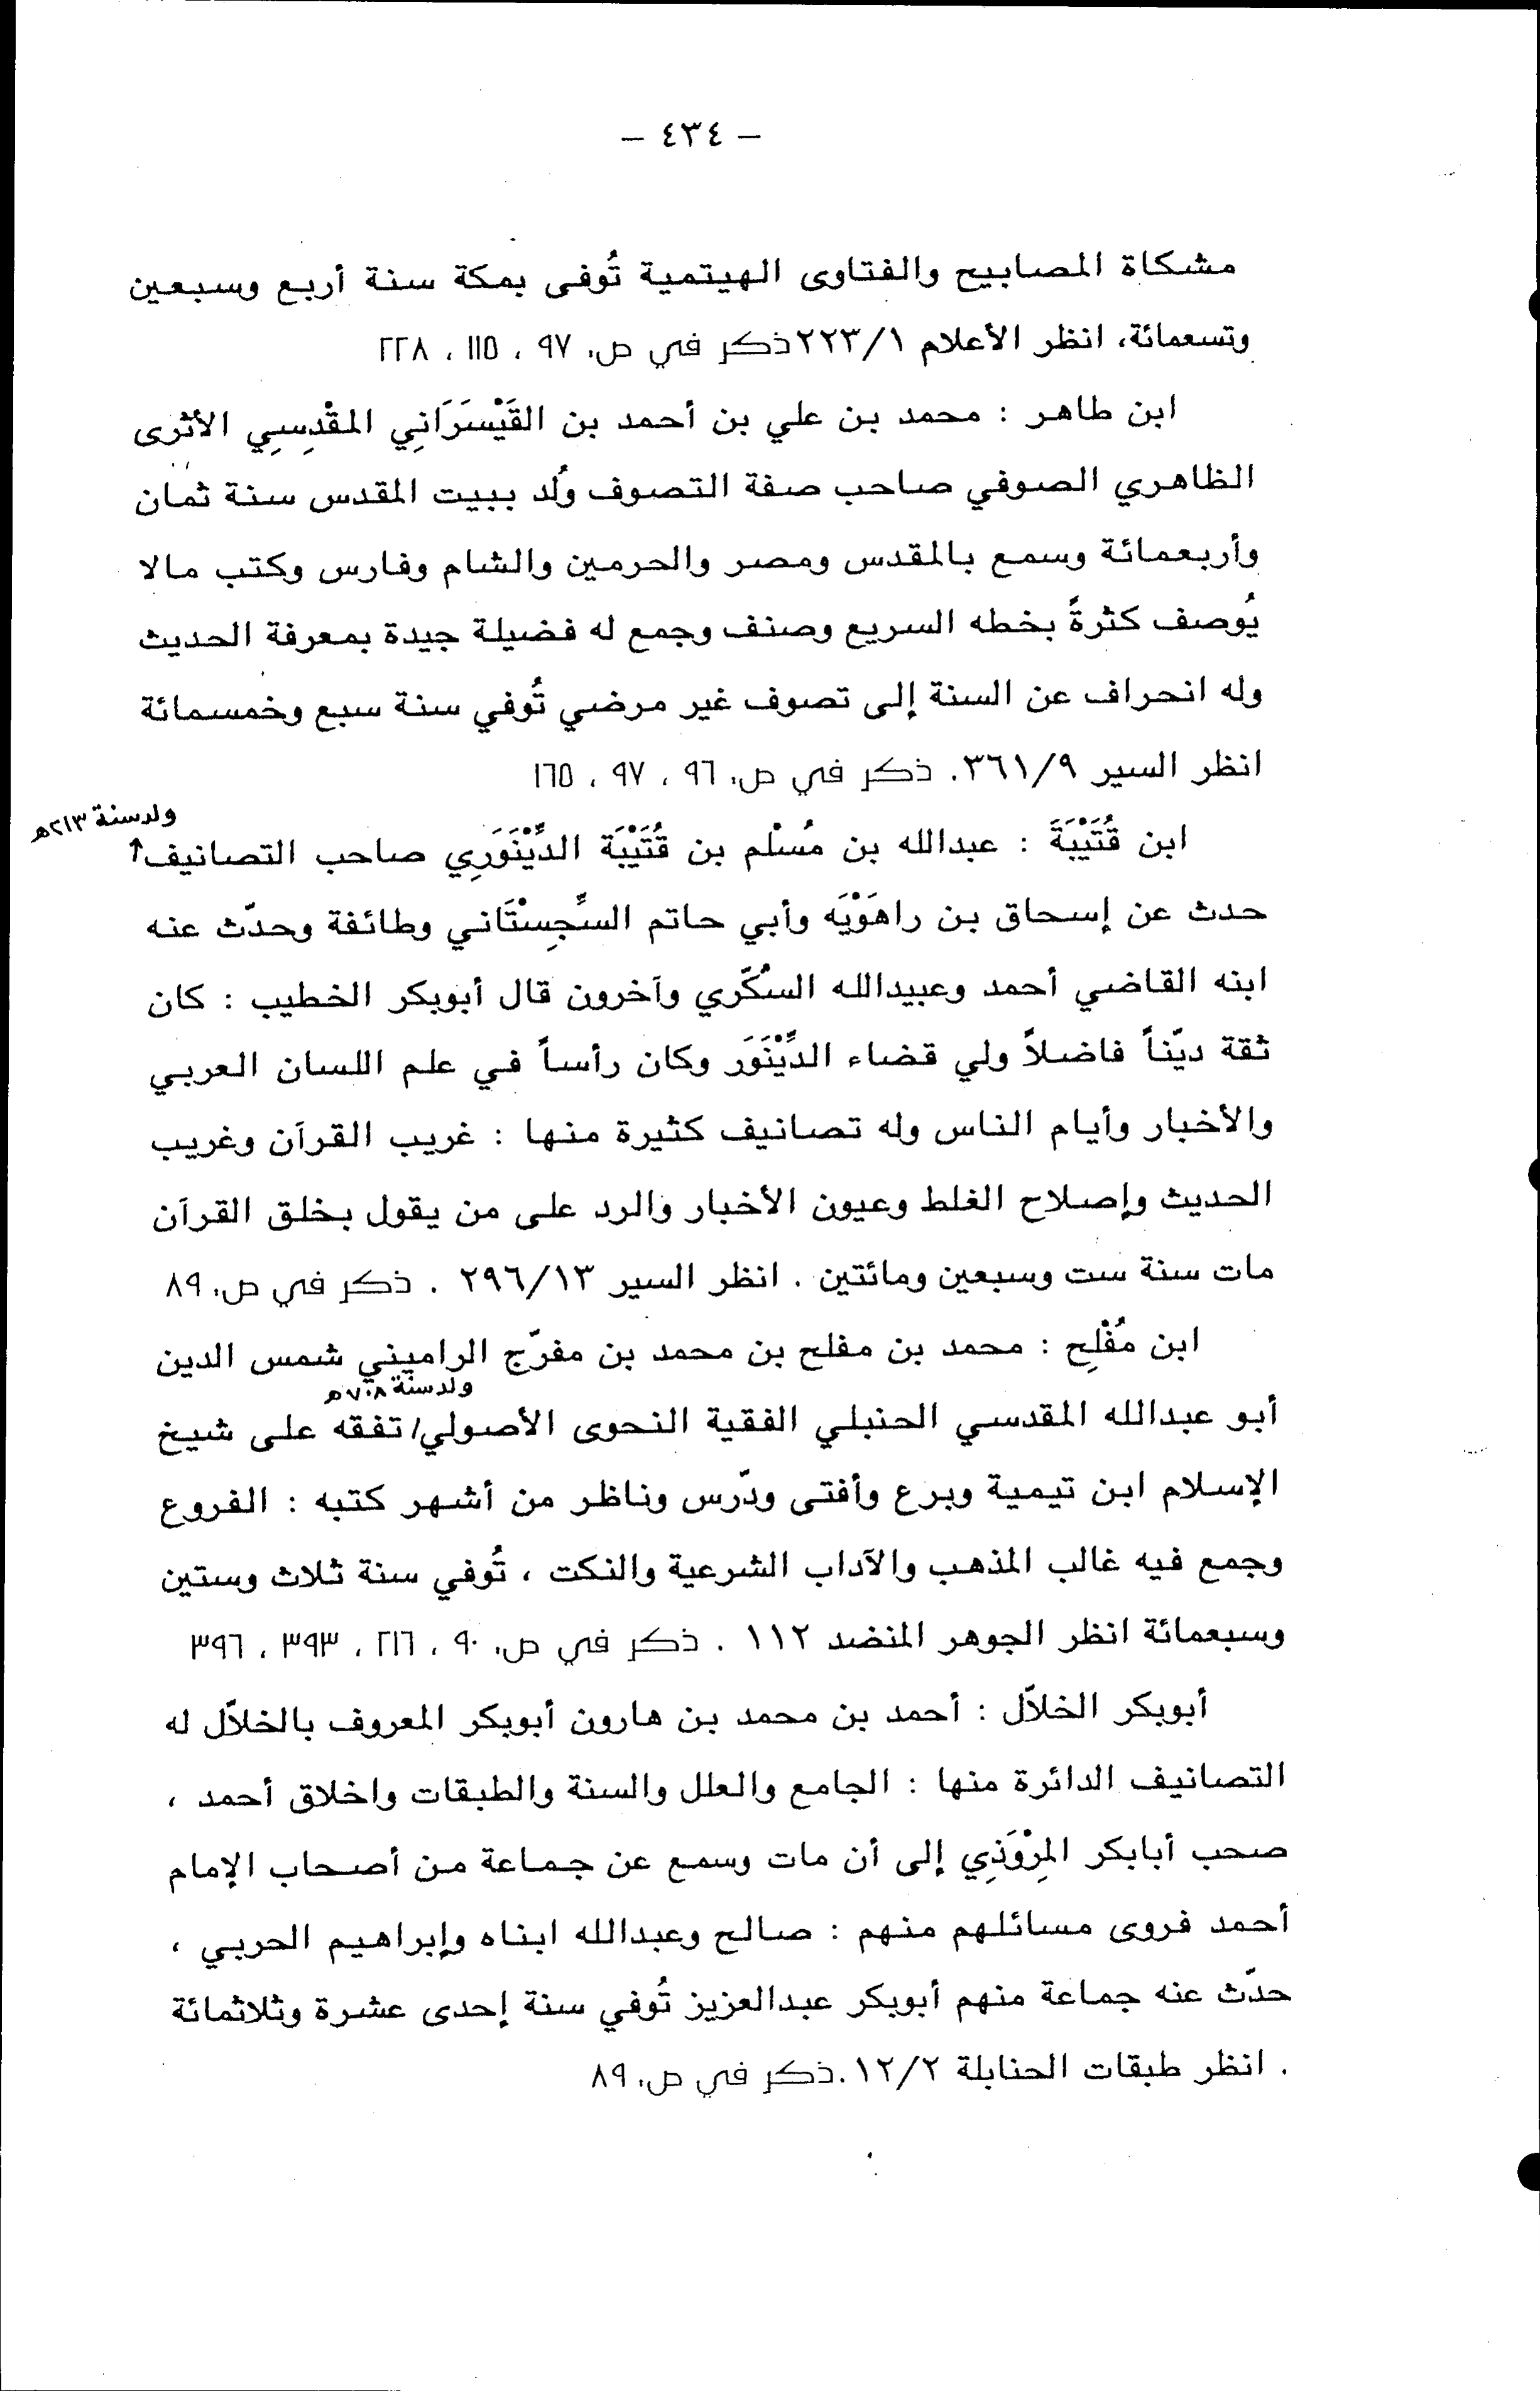 – ٤٣٤ –
مشكاة المصابيح والفتاوى الهيتمية تُوفى بمكة سنة أربع وسبعين
وتسعمائة، انظر الأعلام ٢٢٣/١ ذكر في ص. ٩٧ ، ١١٥ ، ٢٢٨
ابن طاهر : محمد بن علي بن أحمد بن القَيْسَرَانِي المقْدِسِي الأثرى
الظاهري الصوفي صاحب صفة التصوف وُلد ببيت المقدس سنة ثمان
وأربعمائة وسمع بالمقدس ومصر والحرمين والشام وفارس وكتب مالا
يُوصف كثرةً بخطه السريع وصنف وجمع له فضيلة جيدة بمعرفة الحديث
وله انحراف عن السنة إلى تصوف غير مرضي تُوفي سنة سبع وخمسمائة
انظر السير ٣٦١/٩. ذكر في ص. ٩٦ ، ٩٧ ، ١٦٥
ولد سنة ٢١٣هـ
ابن قُتَيْبَةَ : عبدالله بن مُسْلم بن قُتَيْبَة الدِّيْنَوَرِي صاحب التصانيف↑
حدث عن إسحاق بن راهَوْيَه وأبي حاتم السِّجِسْتَاني وطائفة وحدّث عنه
ابنه القاضي أحمد وعبيدالله السُكَّري وآخرون قال أبوبكر الخطيب : كان
ثقة ديّناً فاضلاً ولي قضاء الدِّيْنَوَر وكان رأساً في علم اللسان العربي
والأخبار وأيام الناس وله تصانيف كثيرة منها : غريب القرآن وغريب
الحديث وإصلاح الغلط وعيون الأخبار والرد على من يقول بخلق القرآن
مات سنة ست وسبعين ومائتين . انظر السير ٢٩٦/١٣ . ذكر في ص. ٨٩
ابن مُفْلِح : محمد بن مفلح بن محمد بن مفرّج الراميني شمس الدين
ولد سنة ٧٠٨هـ
أبو عبدالله المقدسي الحنبلي الفقية النحوى الأصولي/ تفقه على شيخ
الإسلام ابن تيمية وبرع وأفتى ودّرس وناظر من أشهر كتبه : الفروع
وجمع فيه غالب المذهب والآداب الشرعية والنكت ، تُوفي سنة ثلاث وستين
وسبعمائة انظر الجوهر المنضد ١١٢ . ذكر في ص. ٩٠ ، ٢١٦ ، ٣٩٣ ، ٣٩٦
أبوبكر الخلاّل : أحمد بن محمد بن هارون أبوبكر المعروف بالخلاّل له
التصانيف الدائرة منها : الجامع والعلل والسنة والطبقات واخلاق أحمد ،
صحب أبابكر المِرْوَذِي إلى أن مات وسمع عن جماعة من أصحاب الإمام
أحمد فروى مسائلهم منهم : صالح وعبدالله ابناه وإبراهيم الحربي ،
حدّث عنه جماعة منهم أبوبكر عبدالعزيز تُوفي سنة إحدى عشرة وثلاثمائة
. انظر طبقات الحنابلة ١٢/٢. ذكر في ص. ٨٩